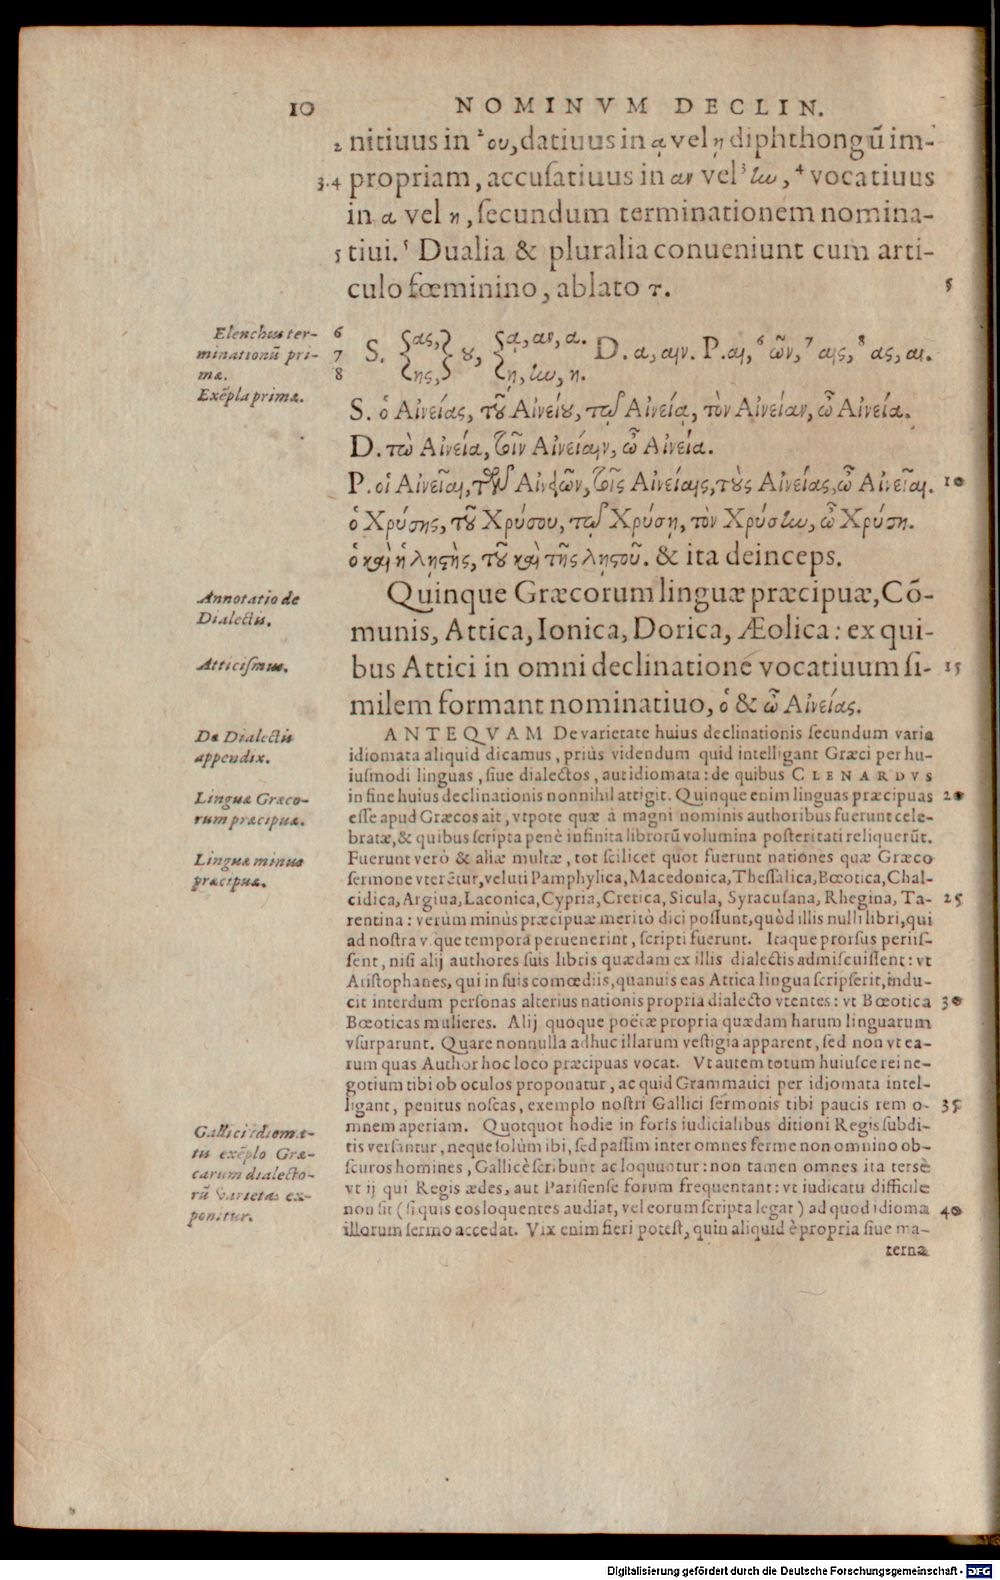 10 NOMINVM DECLIN.
2 nitiuus in ² ου, datiuus in ᾳ vel ῃ diphthongū im-
3.4 propriam, accuſatiuus in αν vel ³ ην, ⁴ vocatiuus
in α vel η, ſecundum terminationem nomina-
5 tiui. ⁵ Dualia & pluralia conueniunt cum arti-
culo fœminino, ablato τ. 5
Elenchus ter-
minationū pri-
mæ.
6
7
8
S. {ας, ης,} ȣ, {ᾳ, αν, α. ῃ, ην, η. D. α, αιν. P. αι, ⁶ ῶν, ⁷ αις, ⁸ ας, αι.
Exēpla primæ.
S. ὁ Αἰνείας, τȣ͂ Αἰνείȣ, τῷ Αἰνείᾳ, τὸν Αἰνείαν, ὦ Αἰνεία.
D. τὼ Αἰνεία, τοῖν Αἰνείαιν, ὦ Αἰνεία.
P. οἱ Αἰνεῖαι, τῶν Αἰνειῶν, τοῖς Αἰνείαις, τȣ̀ς Αἰνείας, ὦ Αἰνεῖαι. 10
ὁ Χρύσης, τȣ͂ Χρύσου, τῷ Χρύσῃ, τὸν Χρύσην, ὦ Χρύση.
ὁ καὶ ἡ λῃϛὴς, τȣ͂ καὶ τῆς λῃϛοῦ. & ita deinceps.
Annotatio de
Dialectis.
Quinque Græcorum linguæ præcipuæ, Cō-
munis, Attica, Ionica, Dorica, Æolica: ex qui-
Atticiſmus.
bus Attici in omni declinatione vocatiuum ſi- 15
milem formant nominatiuo, ὁ & ὦ Αἰνείας.
De Dialectis
appendix.
ANTEQVAM De varietate huius declinationis ſecundum varia
idiomata aliquid dicamus, priùs videndum quid intelligant Græci per hu-
iuſmodi linguas, ſiue dialectos, aut idiomata: de quibus CLENARDVS
Linguæ Græco-
rum præcipuæ.
in fine huius declinationis nonnihil attigit. Quinque enim linguas præcipuas 20
eſſe apud Græcos ait, vtpote quæ à magni nominis authoribus fuerunt cele-
bratæ, & quibus ſcripta penè infinita librorū volumina poſteritati reliquerūt.
Linguæ minus
præcipuæ.
Fuerunt verò & aliæ multæ, tot ſcilicet quot fuerunt nationes quæ Græco
ſermone vterētur, veluti Pamphylica, Macedonica, Theſſalica, Bœotica, Chal-
cidica, Argiua, Laconica, Cypria, Cretica, Sicula, Syracuſana, Rhegina, Ta- 25
rentina: verùm minùs præcipuæ meritò dici poſſunt, quòd illis nulli libri, qui
ad noſtra vſque tempora peruenerint, ſcripti fuerunt. Itaque prorſus periiſ-
ſent, niſi alij authores ſuis libris quædam ex illis dialectis admiſcuiſſent: vt
Ariſtophanes, qui in ſuis comœdiis, quanuis eas Attica lingua ſcripſerit, indu-
cit interdum perſonas alterius nationis propria dialecto vtentes: vt Bœotica 30
Bœoticas mulieres. Alij quoque poëtæ propria quædam harum linguarum
vſurparunt. Quare nonnulla adhuc illarum veſtigia apparent, ſed non vt ea-
rum quas Author hoc loco præcipuas vocat. Vt autem totum huiuſce rei ne-
gotium tibi ob oculos proponatur, ac quid Grammatici per idiomata intel-
ligant, penitus noſcas, exemplo noſtri Gallici ſermonis tibi paucis rem o- 35
Gallici idioma-
tis exēplo Græ-
carum dialecto-
rū varietas ex-
ponitur.
mnem aperiam. Quotquot hodie in foris iudicialibus ditioni Regis ſubdi-
tis verſantur, neque ſolùm ibi, ſed paſſim inter omnes ferme non omnino ob-
ſcuros homines, Gallicè ſcribunt ac loquuntur: non tamen omnes ita tersè
vt ij qui Regis ædes, aut Pariſienſe forum frequentant: vt iudicatu difficile
non ſit (ſi quis eos loquentes audiat, vel eorum ſcripta legat) ad quod idioma 40
illorum ſermo accedat. Vix enim fieri poteſt, quin aliquid è propria ſiue ma-
terna
Digitalisierung gefördert durch die Deutsche Forschungsgemeinschaft - DFG